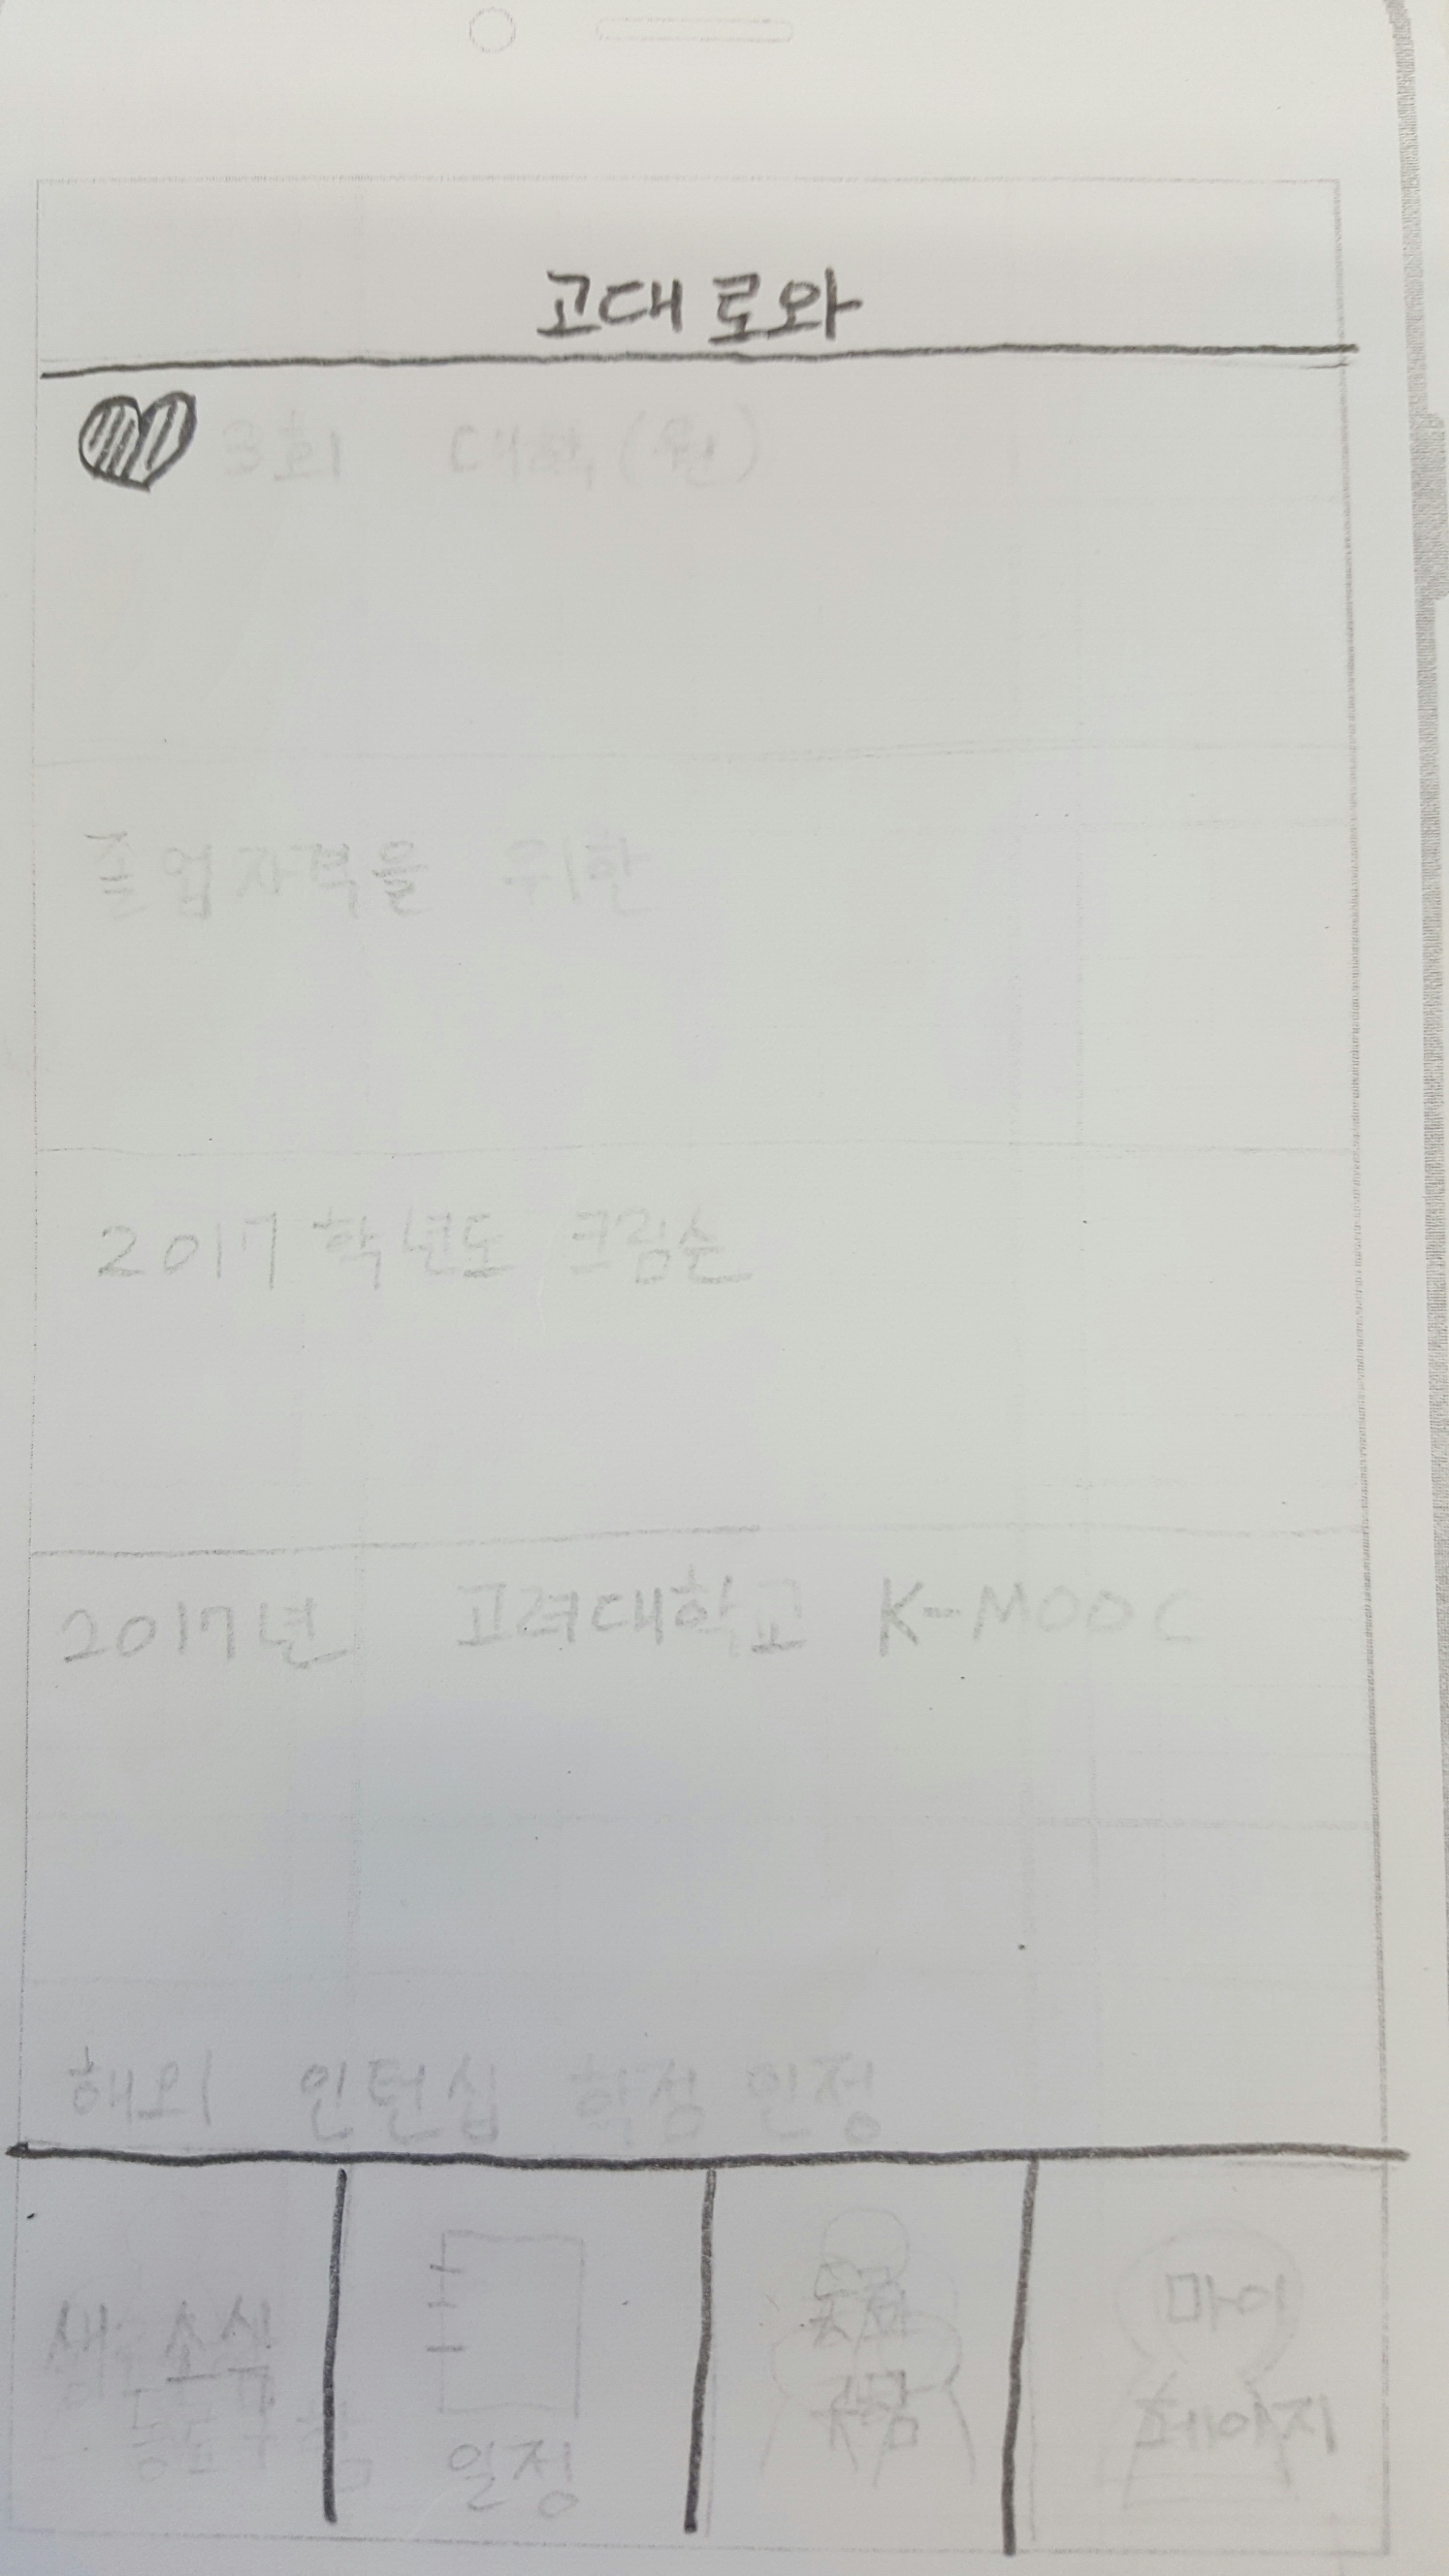 고대로와
3회 대학(원)
졸업자격을 위한
2017학년도 크림슨
2017년 고려대학교 K-MOOC
해외 인턴십 학점 인정
새 소식
일정
동료
구함
마이
페이지